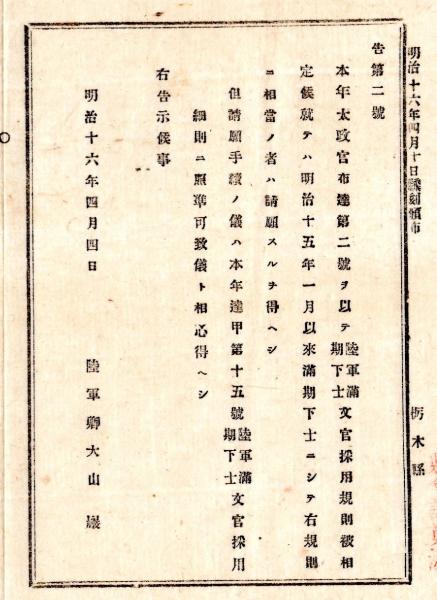 明治十六年四月十日飜刻頒布
栃木縣
告第二號
本年太政官布達第二號ヲ以テ陸軍滿期下士文官採用規則被相
定候就テハ明治十五年一月以來滿期下士ニシテ右規則
ニ相當ノ者ハ請願スルヲ得ヘシ
但請願手續ノ儀ハ本年達甲第十五號陸軍滿期下士文官採用
細則ニ照準可致儀ト相心得ヘシ
右告示候事
明治十六年四月四日
陸軍卿大山巖